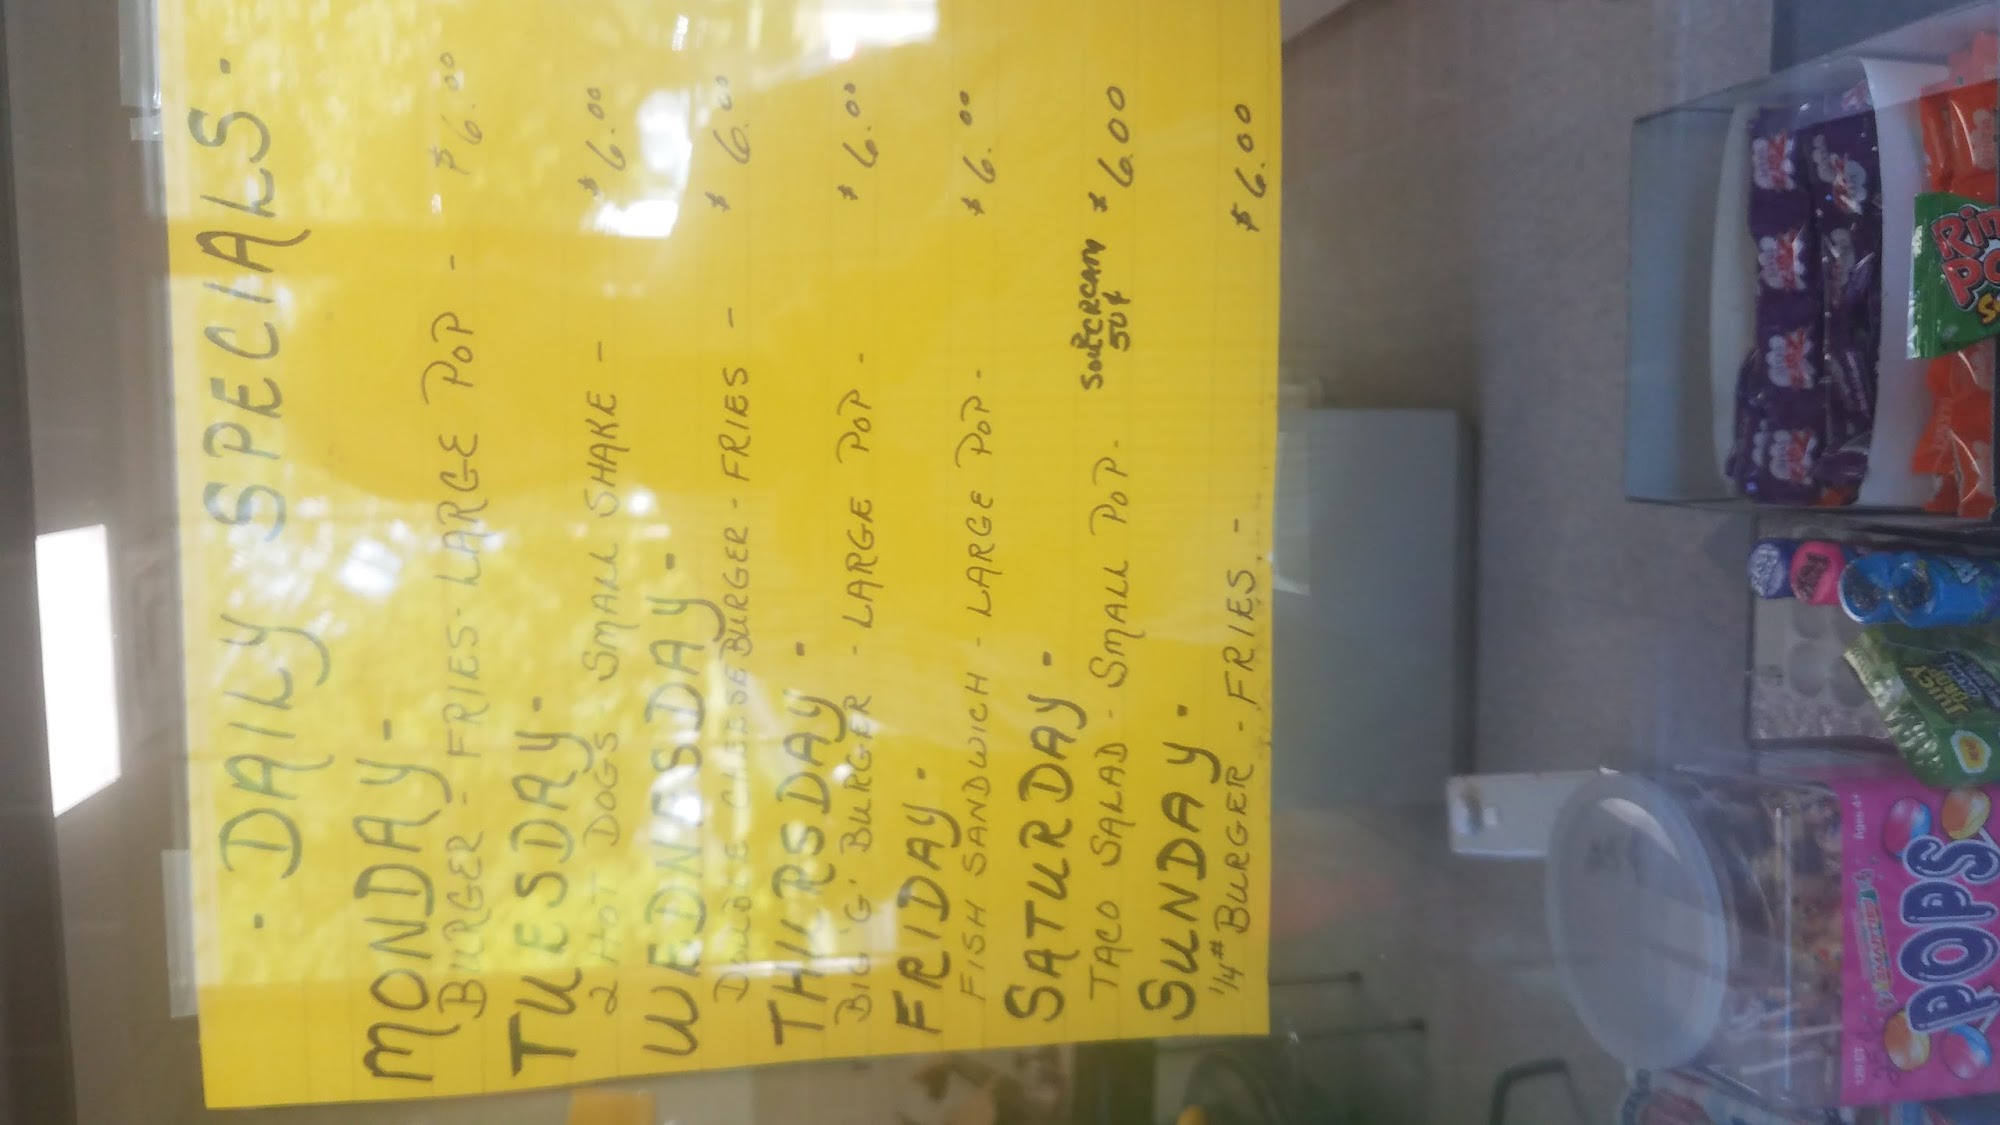 · DAILY SPECIALS ·
MONDAY -
BURGER - FRIES - LARGE POP - - $6.00
TUESDAY -
2 HOT DOGS - SMALL SHAKE - $6.00
WEDNESDAY -
DOUBLE CHEESEBURGER - FRIES - $6.00
THURSDAY -
BIG 'G' BURGER - LARGE POP - $6.00
FRIDAY -
FISH SANDWICH - LARGE POP - $6.00
SATURDAY -
TACO SALAD - SMALL POP - SOUR CREAM 50¢ $6.00
SUNDAY -
1/4# BURGER - FRIES - $6.00
JUICY
POPS
Ages 4+